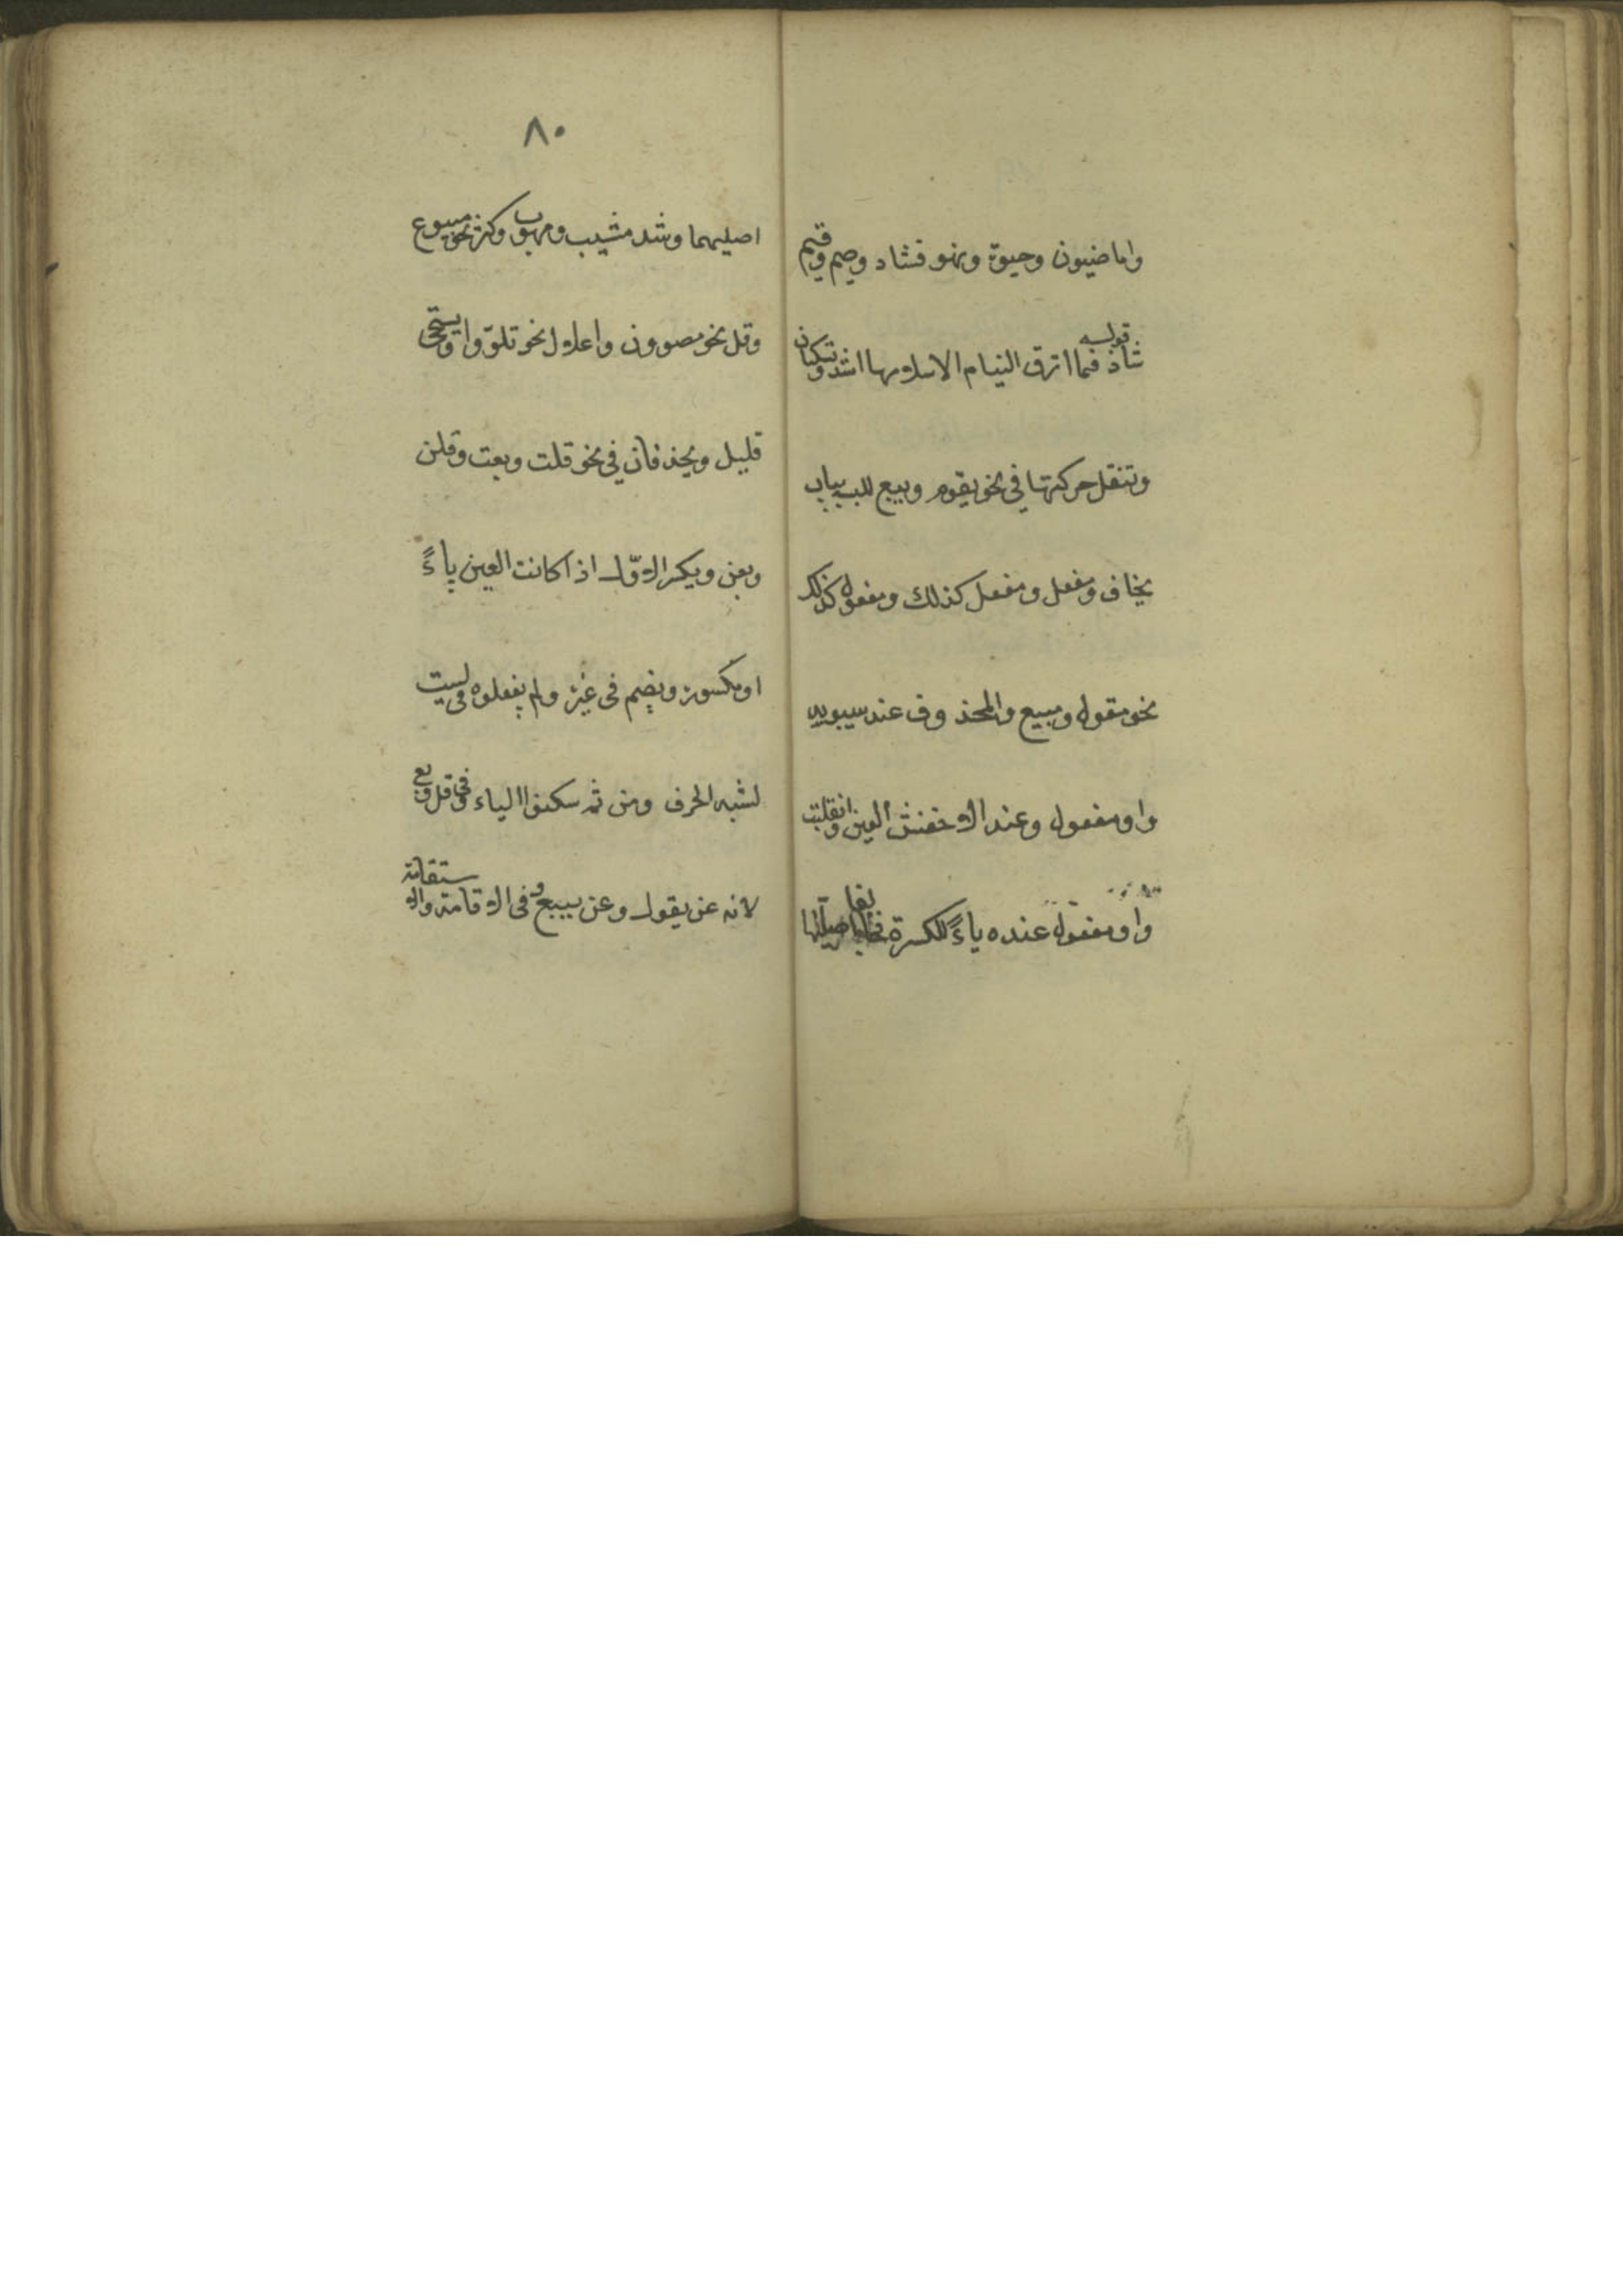 واما ضيون وحيوة ونهو فشاذ وصيم وقيم
شاذ قوله فما ارق النيام الا سلامها اشذ وتسكنان
وتنقل حركتها في نحو يقوم ويبيع للبسه بباب
يخاف ومفعل ومفعل كذلك ومفعول كذلك
نحو مقول ومبيع والمحذوف عند سيبويه
واو مفعول وعند الاخفش العين وانقلبت
واو مفعول عنده ياءً للكسرة فخالفا اصليهما
٨٠
اصليهما وشذ مشيب ومهوب وكثر نحو مبيوع
وقل نحو مصوون واعلال نحو تلووا ويستحي
قليل ويحذفان في نحو قلت وبعت وقلن
وبعن ويكسر الاوّل اذا كانت العين ياءً
او مكسورة ويضم في غيره ولم يفعلوه في ليست
لشبه الحرف ومن ثمه سكنوا الياء وفي قل وبع
لانه عن يقول وعن يبيع وفي الاقامة والاستقامة